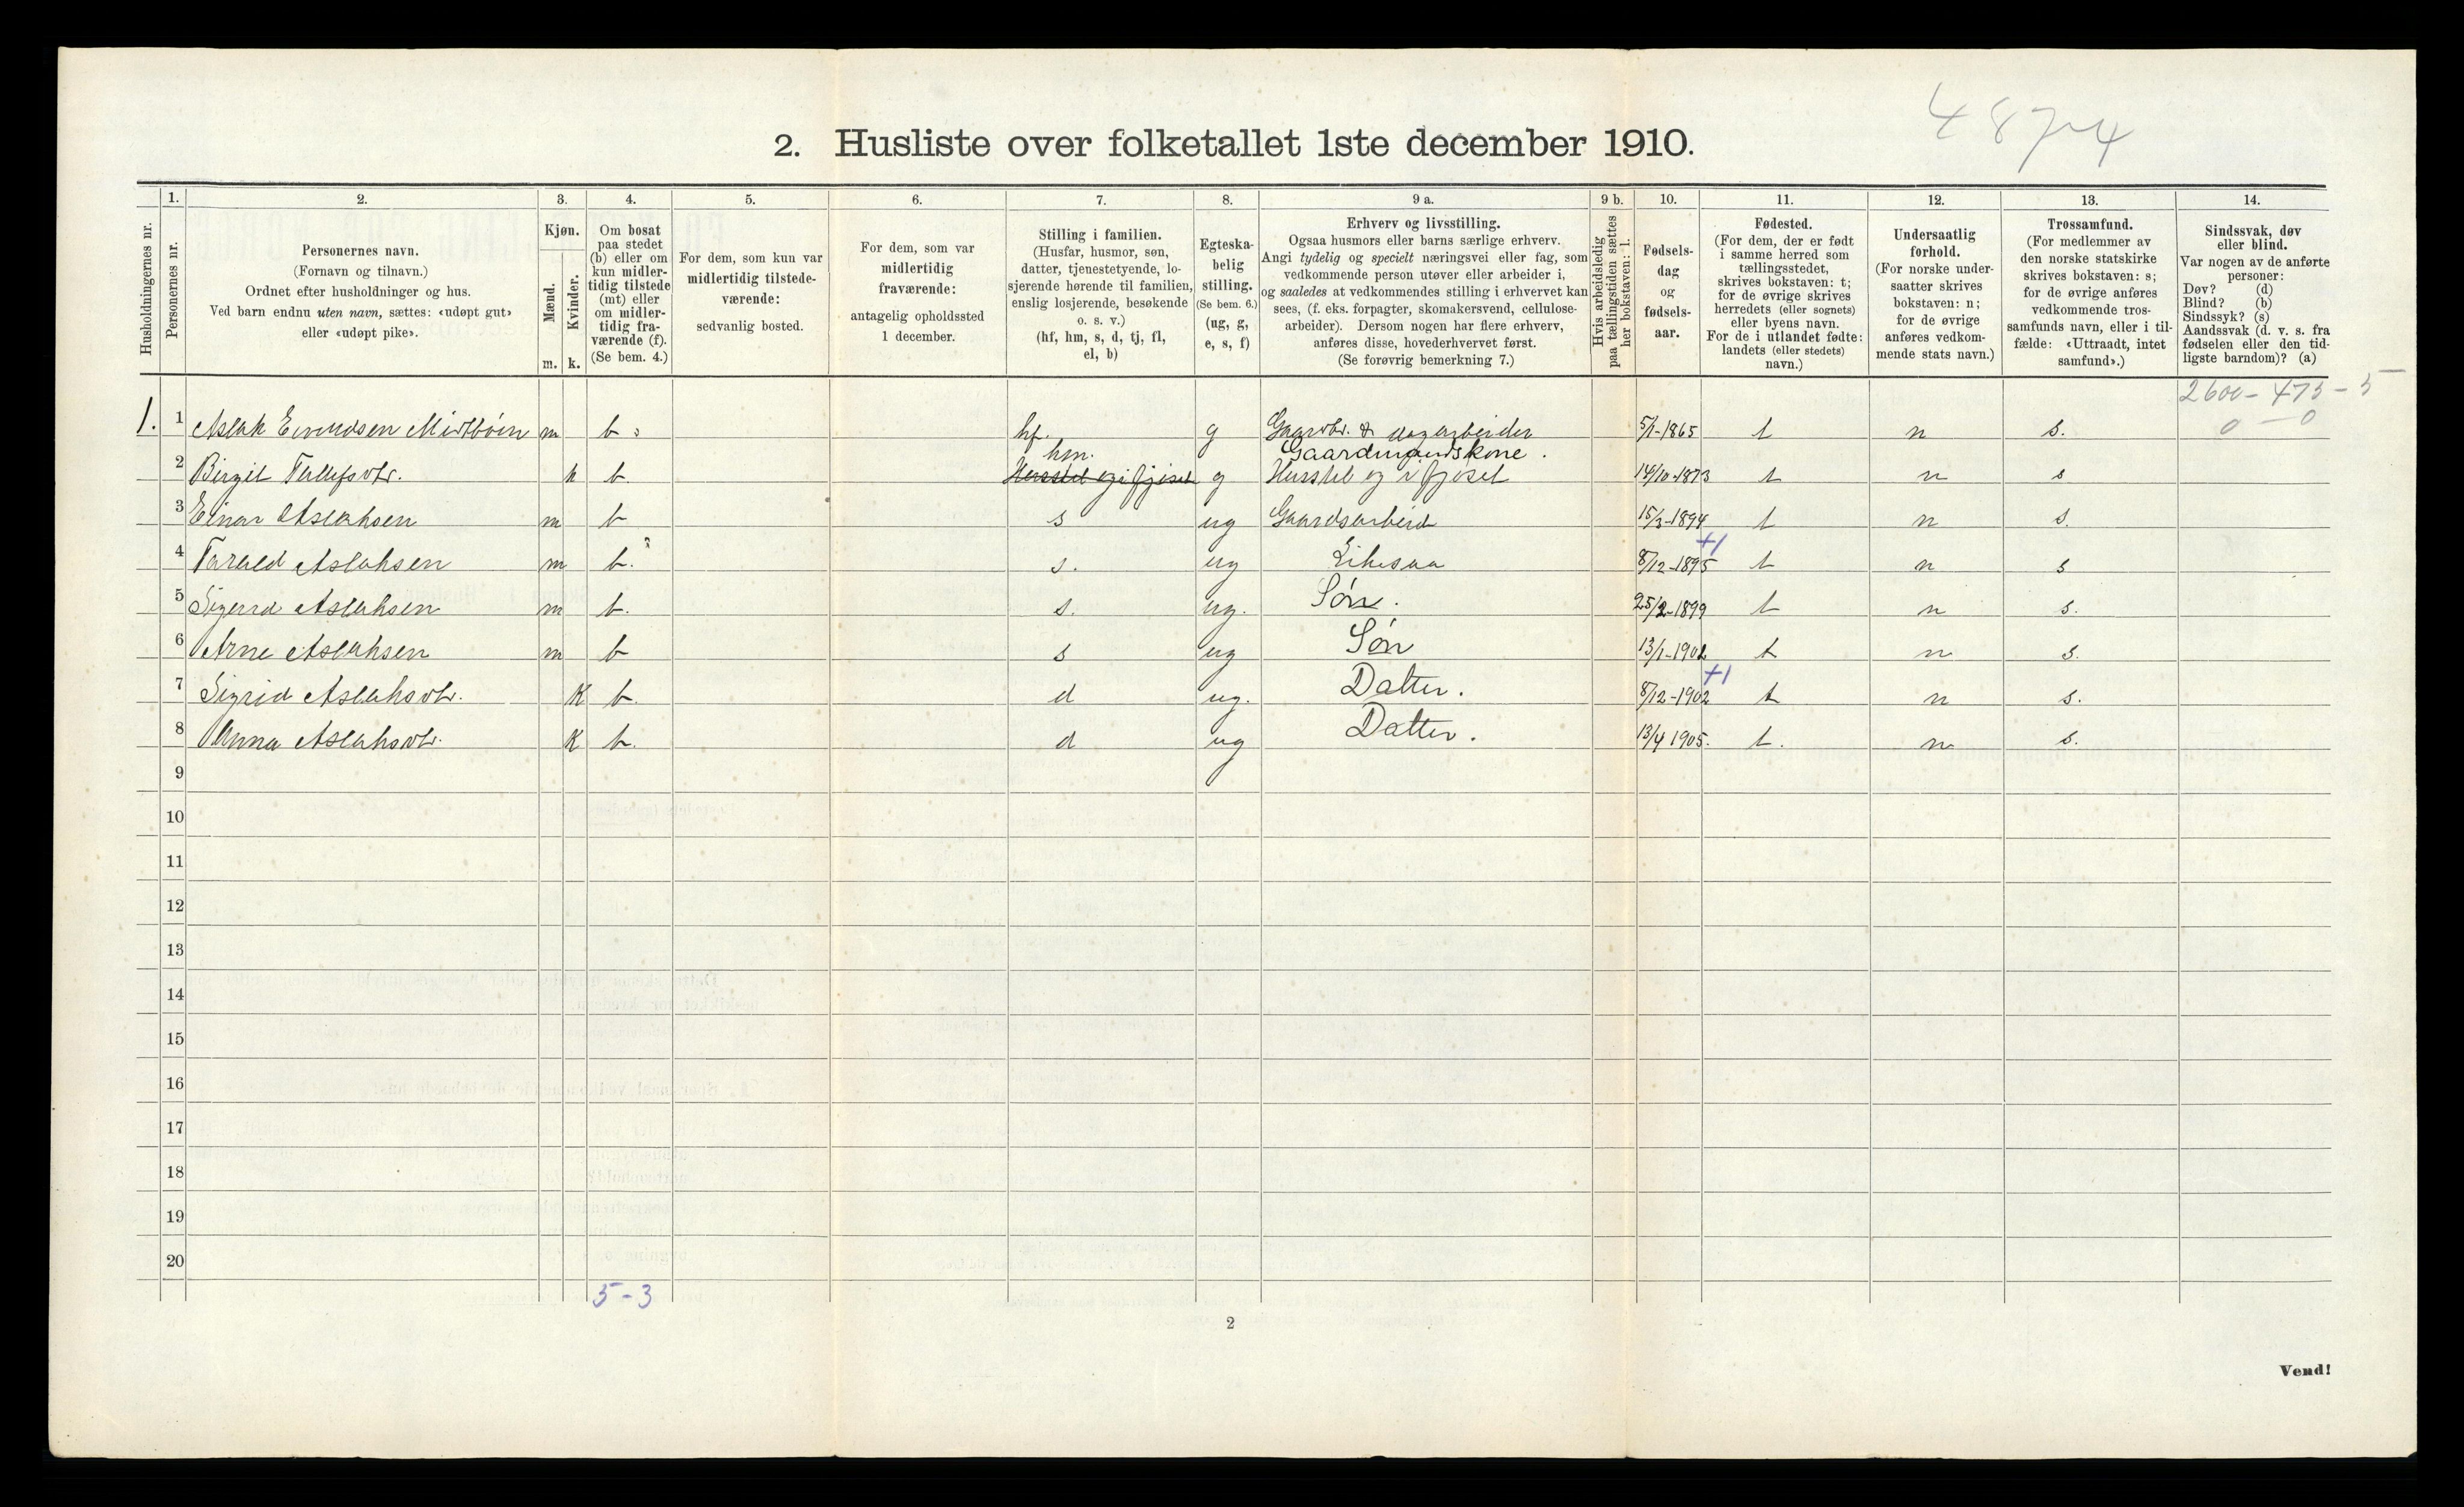 4874
2. Husliste over folketallet 1ste december 1910.
Husholdningernes nr.
1.
Personernes nr.
2.
Personernes navn.
(Fornavn og tilnavn.)
Ordnet efter husholdninger og hus.
Ved barn endnu uten navn, sættes: «udøpt gut»
eller «udøpt pike».
3.
Kjøn.
Mænd.
Kvinder.
m. k.
4.
Om bosat
paa stedet
(b) eller om
kun midler-
tidig tilstede
(mt) eller
om midler-
tidig fra-
værende (f).
(Se bem. 4.)
5.
For dem, som kun var
midlertidig tilstede-
værende:
sedvanlig bosted.
6.
For dem, som var
midlertidig
fraværende:
antagelig opholdssted
1 december.
7.
Stilling i familien.
(Husfar, husmor, søn,
datter, tjenestetyende, lo-
sjerende hørende til familien,
enslig losjerende, besøkende
o. s. v.)
(hf, hm, s, d, tj, fl,
el, b)
8.
Egteska-
belig
stilling.
(Se bem. 6.)
(ug, g,
e, s, f)
9 a.
Erhverv og livsstilling.
Ogsaa husmors eller barns særlige erhverv.
Angi tydelig og specielt næringsvei eller fag, som
vedkommende person utøver eller arbeider i,
og saaledes at vedkommendes stilling i erhvervet kan
sees, (f. eks. forpagter, skomakersvend, cellulose-
arbeider). Dersom nogen har flere erhverv,
anføres disse, hovederhvervet først.
(Se forøvrig bemerkning 7.)
9 b.
Hvis arbeidsledig
paa tællingstiden sættes
her bokstaven: l.
10.
Fødsels-
dag
og
fødsels-
aar.
11.
Fødested.
(For dem, der er født
i samme herred som
tællingsstedet,
skrives bokstaven: t;
for de øvrige skrives
herredets (eller sognets)
eller byens navn.
For de i utlandet fødte:
landets (eller stedets)
navn.)
12.
Undersaatlig
forhold.
(For norske under-
saatter skrives
bokstaven: n;
for de øvrige
anføres vedkom-
mende stats navn.)
13.
Trossamfund.
(For medlemmer av
den norske statskirke
skrives bokstaven: s;
for de øvrige anføres
vedkommende tros-
samfunds navn, eller i til-
fælde: «Uttraadt, intet
samfund».)
14.
Sindssvak, døv
eller blind.
Var nogen av de anførte
personer:
Døv? (d)
Blind? (b)
Sindssyk? (s)
Aandssvak (d. v. s. fra
fødselen eller den tid-
ligste barndom)? (a)
2600 - 475 - 5
0 - 0
1. 1 Aslak Eivindsen Midtbøen m b hf. g Gaardbr. & dagarbeider 5/1-1865 t n s.
hm. Gaardmandskone.
2 Birgit Tallefsdtr. k b Husstel og i fjøset g Husstel og i fjøset 14/10-1873 t n s
3 Einar Aslaksen m b s ug Gaardsarbeid 15/3-1894 t n s.
+1
4 Tarald Aslaksen m b. s. ug Likesaa 8/12-1895 t n s
5 Sigurd Aslaksen m b. s. ug. Søn. 25/2-1899 t n s.
6 Arne Aslaksen m b s ug Søn 13/1-1902 t n s.
+1
7 Sigrid Aslaksdtr. K b. d ug. Datter. 8/12-1902 t n s.
8 Anna Aslaksdtr. K b. d ug Datter. 13/4 1905. t. n s.
9
10
11
12
13
14
15
16
17
18
19
20
5 - 3
2
Vend!